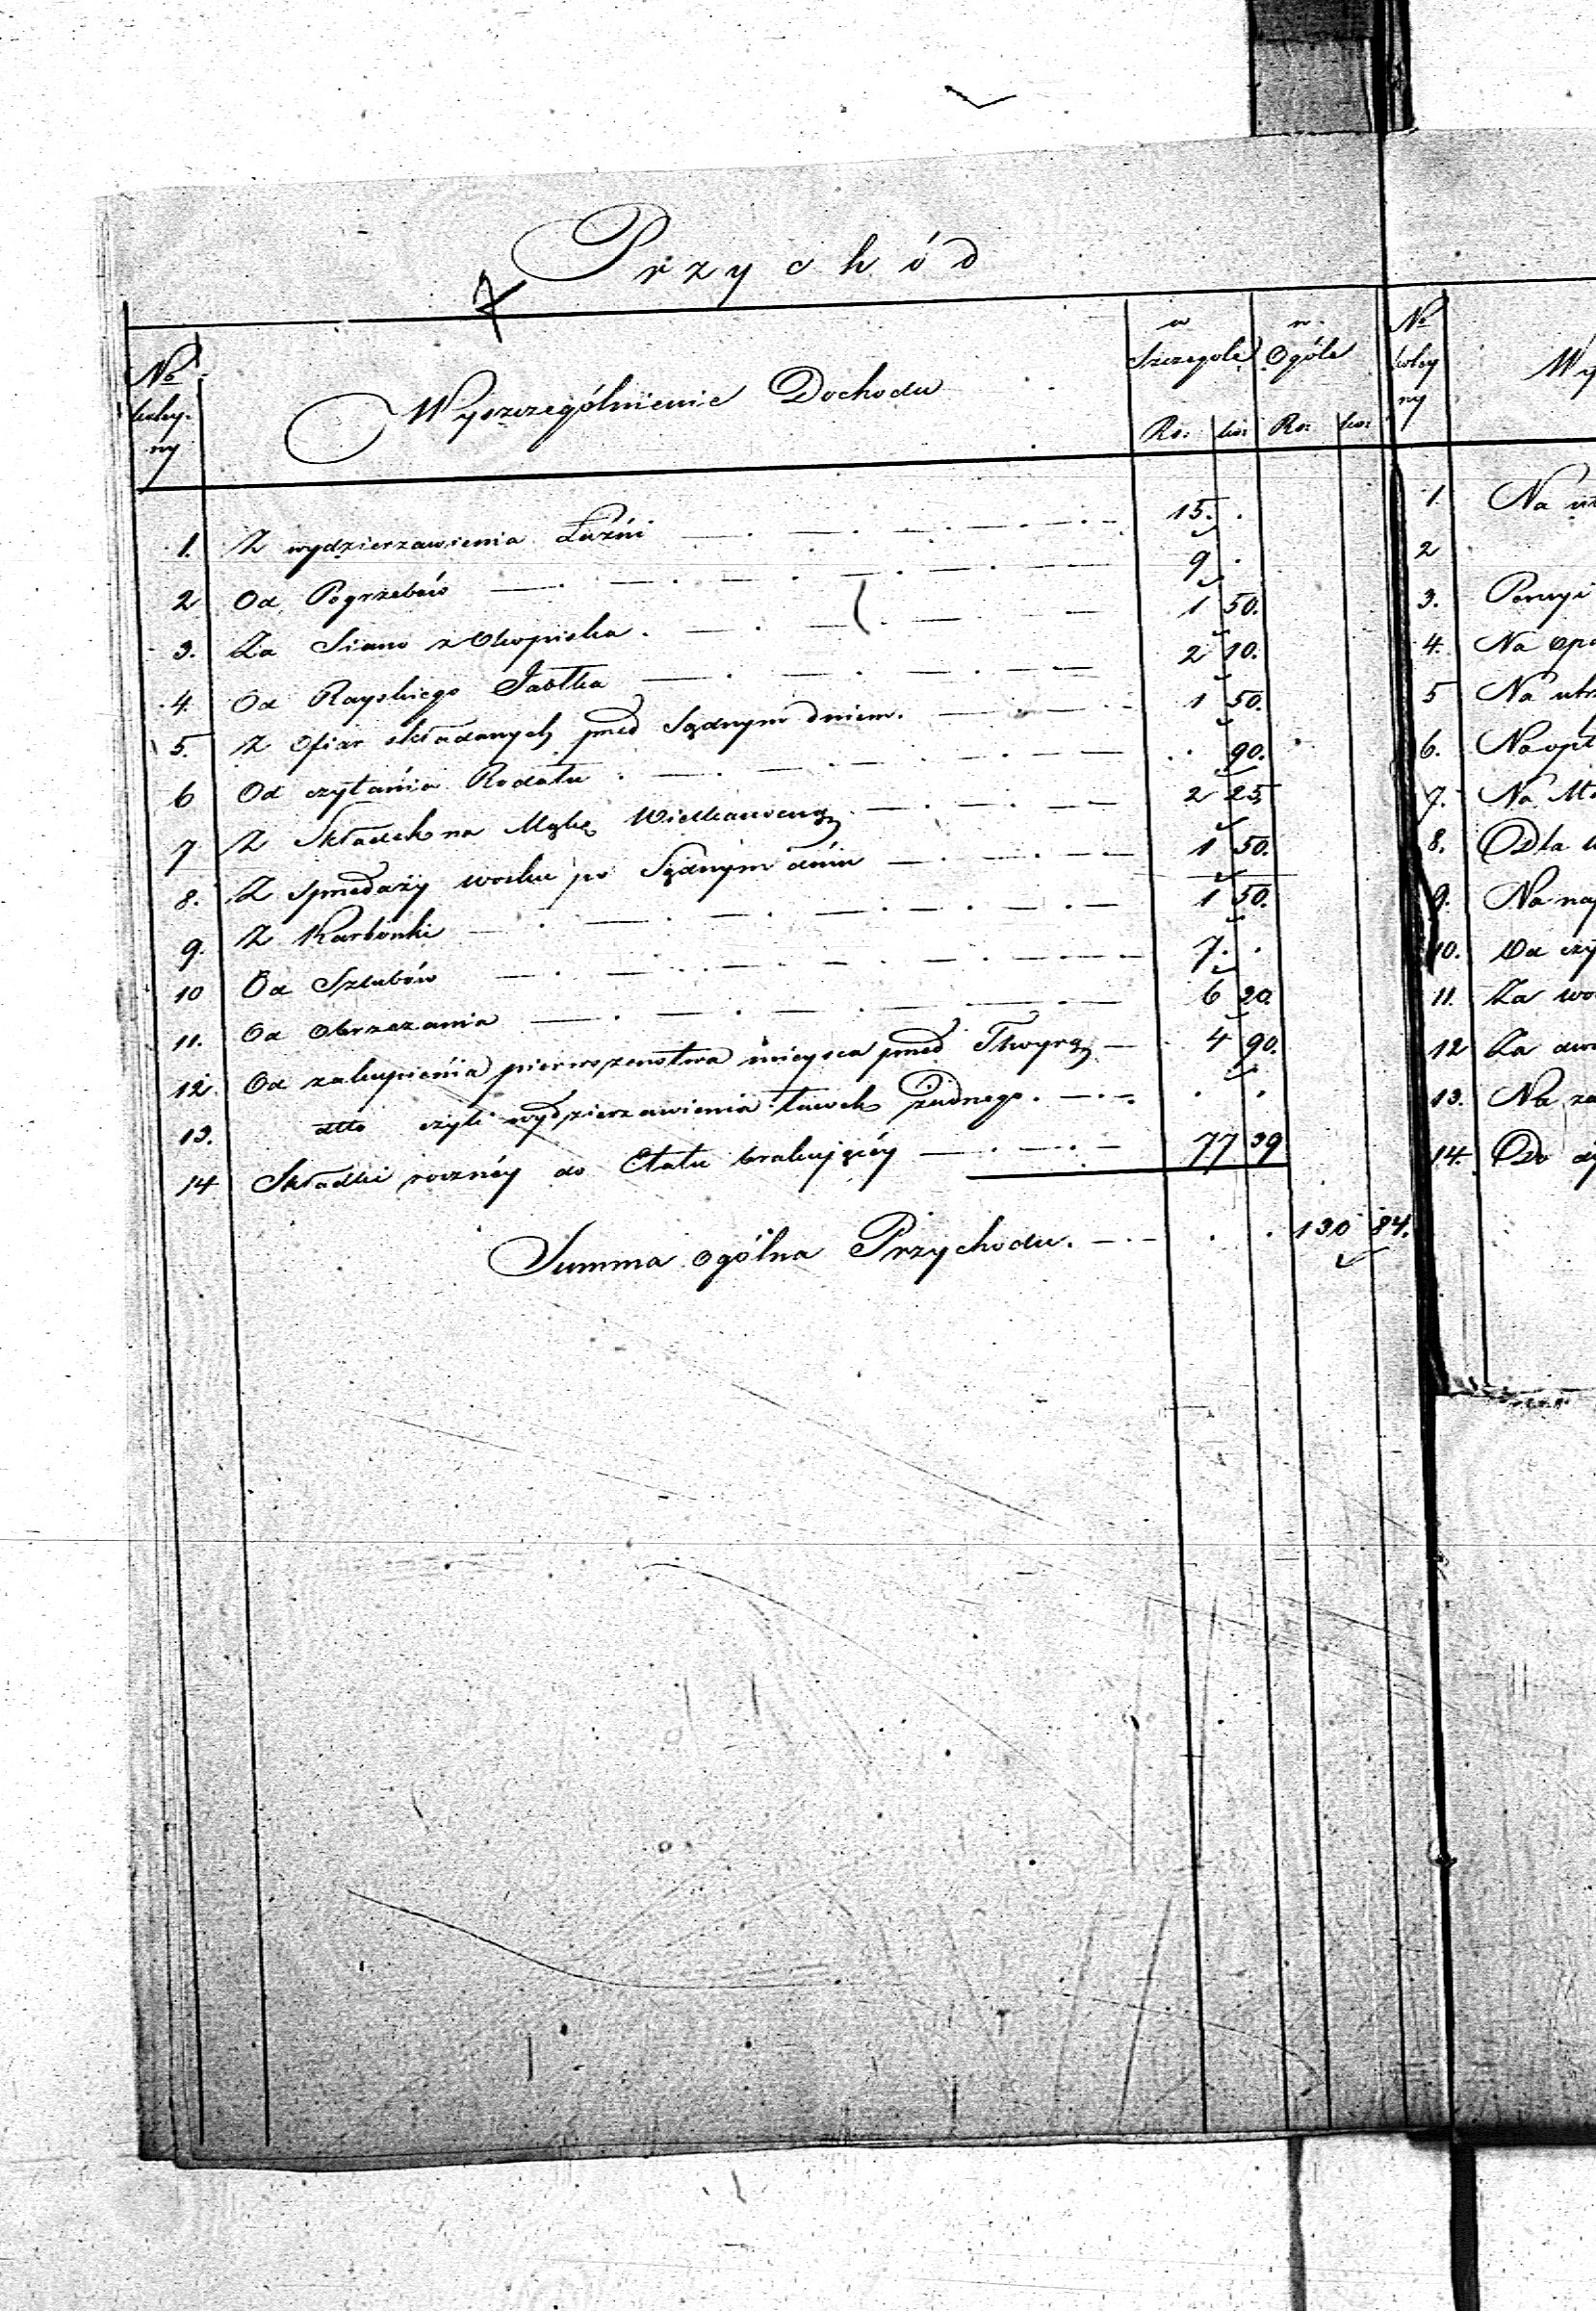 Przychód
№ koley-ny
Wyszczególnienie Dochodu
w Szczególe
w Ogóle
Rs: ko: Rs: ko:
1. Z wydzierzawienia Łaźni 15. .
2 Od Pogrzebów 9 .
3. Za Siano z Okopiska 1 50.
4. Od Rayskiego Jabłka 2 10.
5. Z Ofiar składanych przed Sądnym dniem. 1 50.
6 Od czytania Rodału . 90.
7 Z Składek na Mąkę Wielkanocną 2 25
8. Z Sprzedaży wosku po Sądnym dniu 1 50.
9. Z Karbonki 1 50.
10 Od Szlubów 7. .
11. Od Obrzezania 6 20.
12. Od zakupienia pierwszenstwa mieysca przed Thwyrą 4 90.
13. dtto czyli wydzierzawienia ławek żadnego . .
14 Składki rocznéy do Etatu brakuiącéy 77 39
Summa ogólna Przychodu. . . 130 84.
№ koley ny
Wy
1. Na
2
3. Pensyi
4. Na opa
5 Na utr
6. Na opł
7. Na
8. Dla
9. Na naj
10. Od czy
11. Za wo
12 Za
13. Na
14. Do